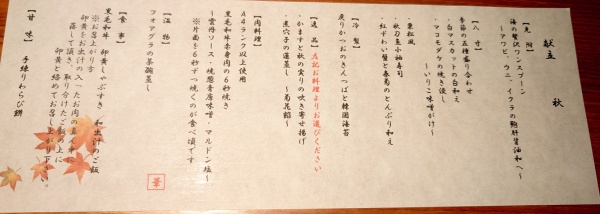 献立 秋
【先附】
海の贅沢ワンスプーン
～アワビ、ウニ、イクラの鮑肝醤油和へ～
【八寸】
季節の五種盛り合わせ
・白マスカットの白和え
・マコモダケの焼き浸し
～いりこ味噌がけ～
・栗松風
・秋刀魚小袖寿司
・紅ずわい蟹と春菊のとんぶり和え
【冷製】
炙りかつおのきんつばと韓国海苔
【逸品】左記お料理よりお選びください
・かますと秋の実りの吹き寄せ揚げ
・煮穴子の蓮蒸し ～菊花餡～
【肉料理】
A4ランク以上使用
黒毛和牛赤身肉の6秒焼き
～雲丹ソース・燒葱青唐味噌・マルドン塩～
※片面を6秒ずつ焼くのが食べ頃です
【温物】
フォアグラの茶碗蒸し
【食事】
黒毛和牛 卵黄しゃぶすき 和出汁のご飯
※お召上がり方
卵黄をお出汁の入ったお肉の真ん中に
落して頂き、取り分けたご飯の上に
卵黄と絡めてお召し上がり下さい。
【甘味】
手練りわらび餅
華